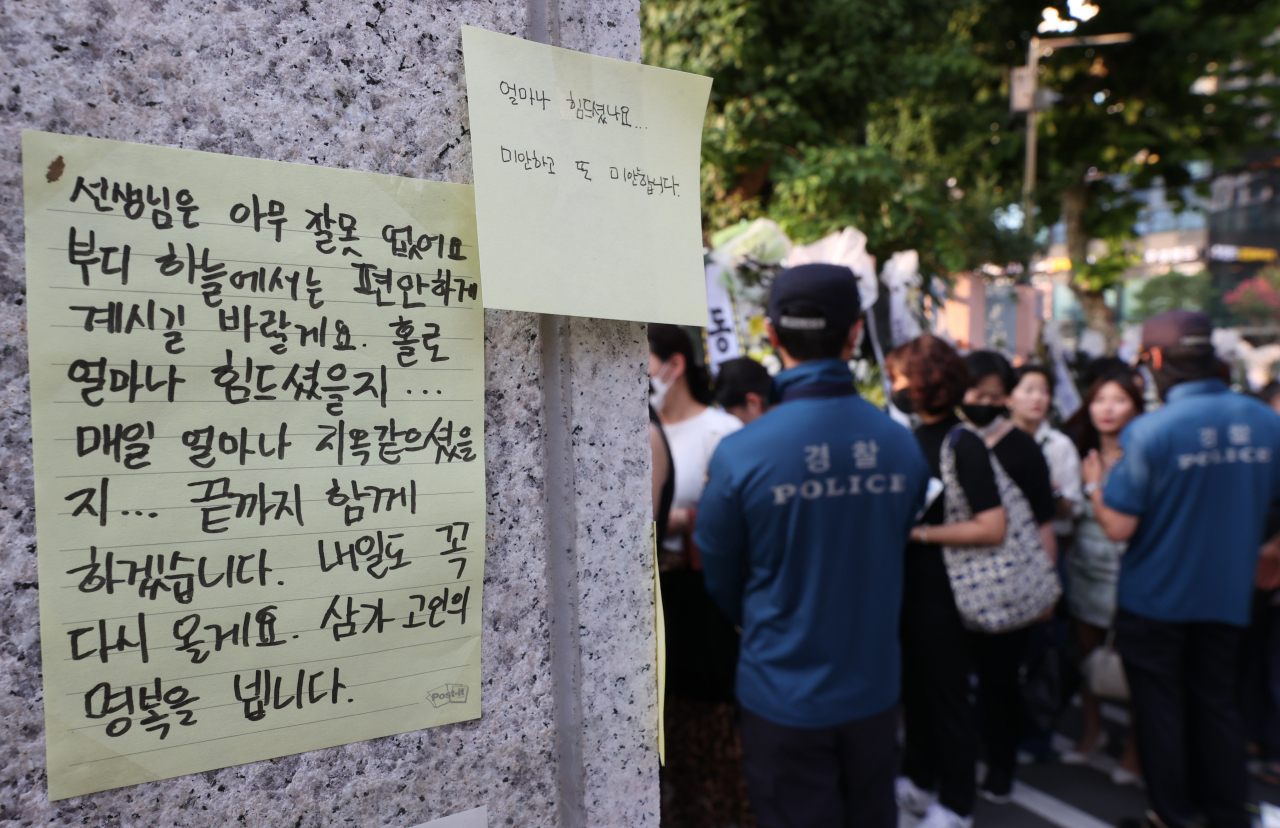 선생님은 아무 잘못 없어요
부디 하늘에서는 편안하게
계시길 바랄게요. 홀로
얼마나 힘드셨을지...
매일 얼마나 지옥같으셨을
지... 끝까지 함께
하겠습니다. 내일도 꼭
다시 올게요. 삼가 고인의
명복을 빕니다.
Post-it
얼마나 힘드셨나요...
미안하고 또 미안합니다.
동
경찰
POLICE
경찰
POLICE